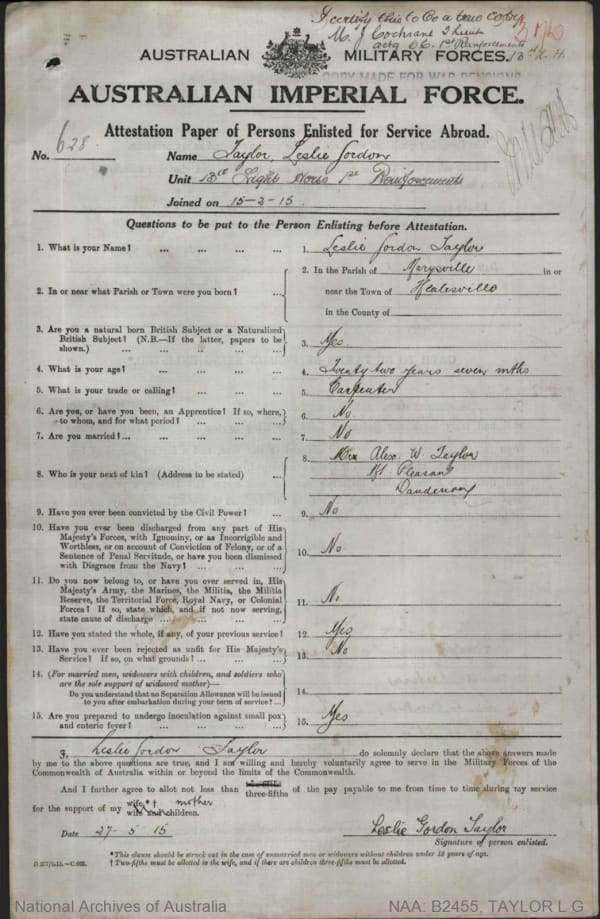 I certify this to be a true copy
M. J. Cochrane 2 Lieut
actg OC. 1st Reinforcements
13th L.H.
AUSTRALIAN MILITARY FORCES.
COPY MADE FOR WAR PENSIONS
AUSTRALIAN IMPERIAL FORCE.
Attestation Paper of Persons Enlisted for Service Abroad.
No. 628 Name Taylor, Leslie Gordon
Unit 13th Light Horse 1st Reinforcements
Joined on 15-2-15.
Questions to be put to the Person Enlisting before Attestation.
1. What is your Name? ... ... ... ... 1. Leslie Gordon Taylor
2. In or near what Parish or Town were you born? ... 2. In the Parish of Marysville in or
near the Town of Healesville
in the County of
3. Are you a natural born British Subject or a Naturalized
British Subject? (N.B.—If the latter, papers to be
shown.) ... ... ... ... 3. Yes.
4. What is your age? ... ... ... ... 4. Twenty two years seven mths
5. What is your trade or calling? ... ... ... 5. Carpenter
6. Are you, or have you been, an Apprentice? If so, where,
to whom, and for what period? ... ... ... 6. No
7. Are you married?... ... ... ... ... 7. No
8. Who is your next of kin? (Address to be stated) ... 8. Mrs Alex. W. Taylor
Mt. Pleasant
Dandenong
9. Have you ever been convicted by the Civil Power? ... 9. No
10. Have you ever been discharged from any part of His
Majesty's Forces, with Ignominy, or as Incorrigible and
Worthless, or on account of Conviction of Felony, or of a
Sentence of Penal Servitude, or have you been dismissed
with Disgrace from the Navy? ... ... ... 10. No
11. Do you now belong to, or have you ever served in, His
Majesty's Army, the Marines, the Militia, the Militia
Reserve, the Territorial Force, Royal Navy, or Colonial
Forces? If so, state which, and if not now serving,
state cause of discharge ... ... ... ... 11. No
12. Have you stated the whole, if any, of your previous service? 12. Yes
13. Have you ever been rejected as unfit for His Majesty's
Service? If so, on what grounds? ... ... ... 13. No
14. (For married men, widowers with children, and soldiers who
are the sole support of widowed mother)—
Do you understand that no Separation Allowance will be issued
to you after embarkation during your term of service? ... 14.
15. Are you prepared to undergo inoculation against small pox
and enteric fever? ... ... ... ... 15. Yes
I, Leslie Gordon Taylor do solemnly declare that the above answers made
by me to the above questions are true, and I am willing and hereby voluntarily agree to serve in the Military Forces of the
Commonwealth of Australia within or beyond the limits of the Commonwealth.
And I further agree to allot not less than three-fifths of the pay payable to me from time to time during my service
for the support of my wife*† mother
wife and children.
Date 27-5-15 Leslie Gordon Taylor
Signature of person enlisted.
*This clause should be struck out in the case of unmarried men or widowers without children under 18 years of age.
† Two-fifths must be allotted to the wife, and if there are children three-fifths must be allotted.
National Archives of Australia NAA: B2455, TAYLOR L G